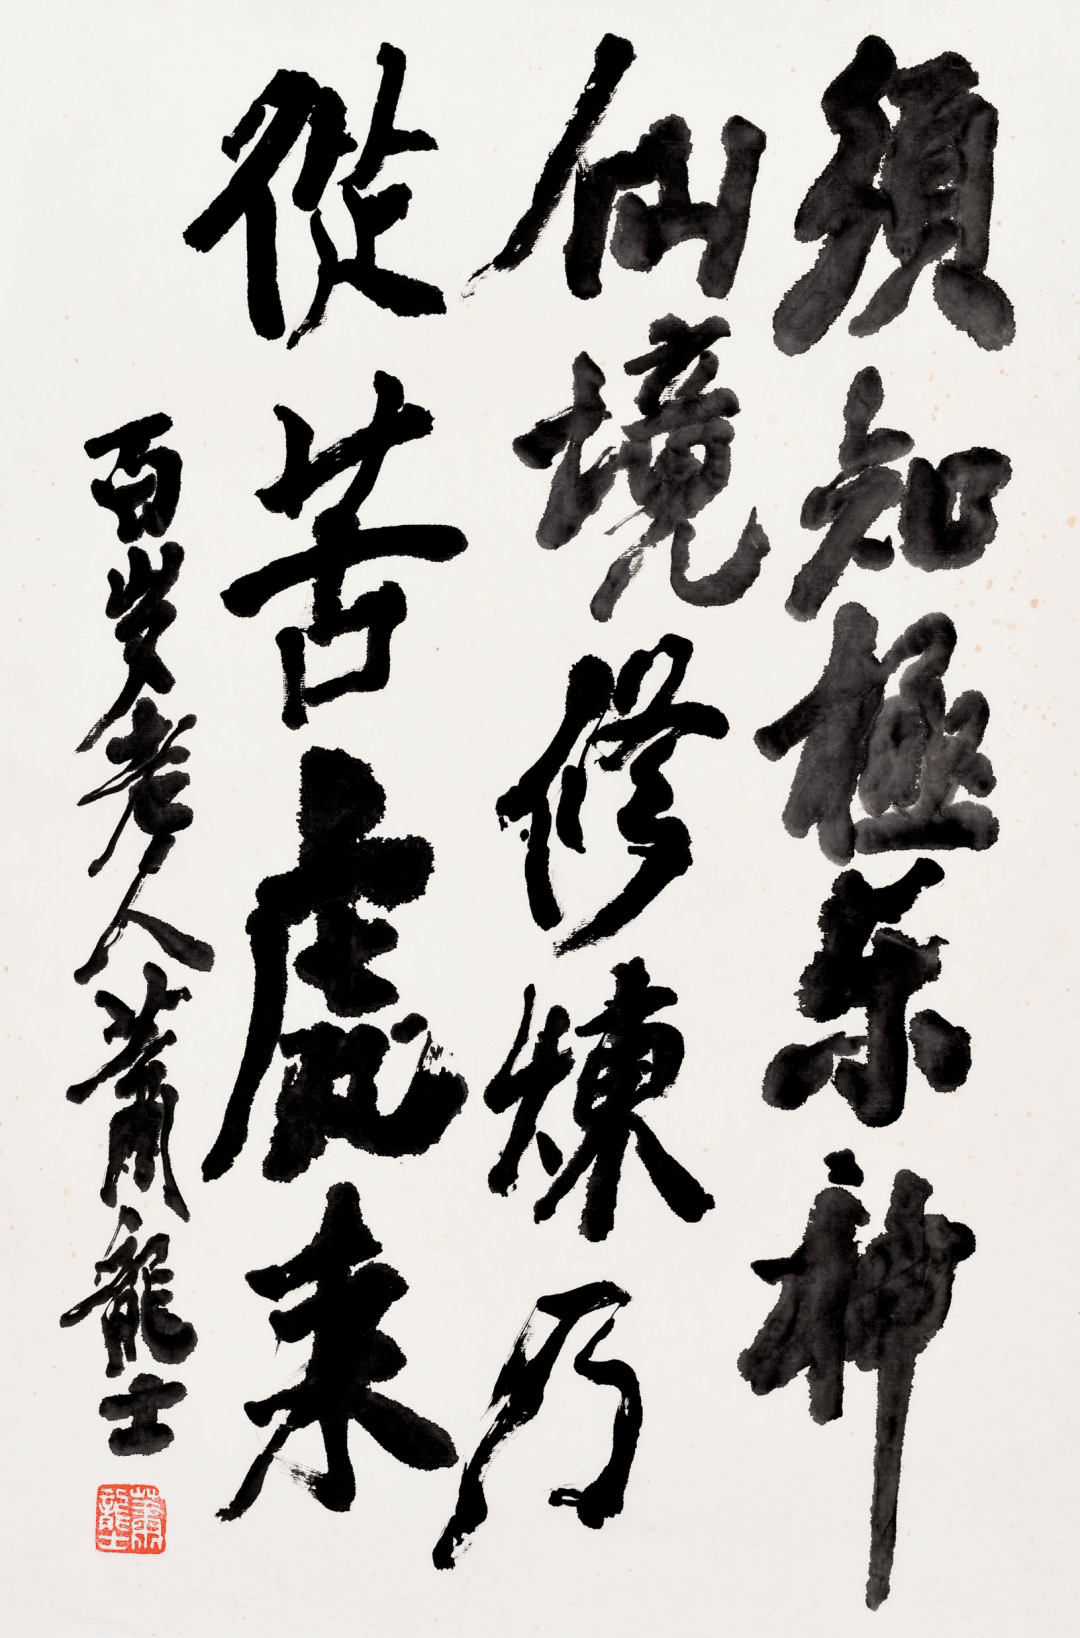 須知極樂神
仙境修煉乃
從苦處來
百岁老人蕭龍士
蕭龍士